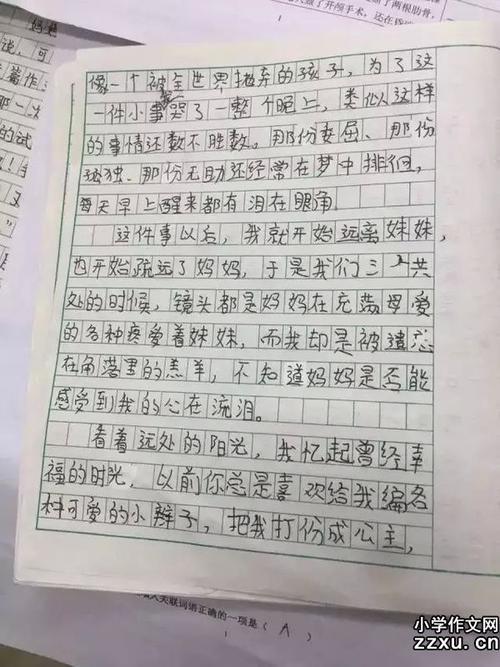 了两根肋骨,
做了开颅手术,还在
说,可
像一个被全世界抛弃的孩子,为了这
一件小事哭了一整个晚上,类似这样
的事情还数不胜数。那份委屈、那份
孤独、那份无助还经常在梦中排徊,
每天早上醒来都有泪在眼角。
这件事以后,我就开始远离妹妹,
也开始疏远了妈妈,于是我们三人共
处的时候,镜头都是妈妈在充满母爱
的各种疼爱着妹妹,而我却是被遗忘
在角落里的羔羊,不知道妈妈是否能
感受到我的心在流泪。
看着远处的阳光,我忆起曾经幸
福的时光,以前你总是喜欢给我编各
种可爱的小辫子,把我打份成公主,
入关联词语正确的一项是( A )
小学作文网
zzxu.cn